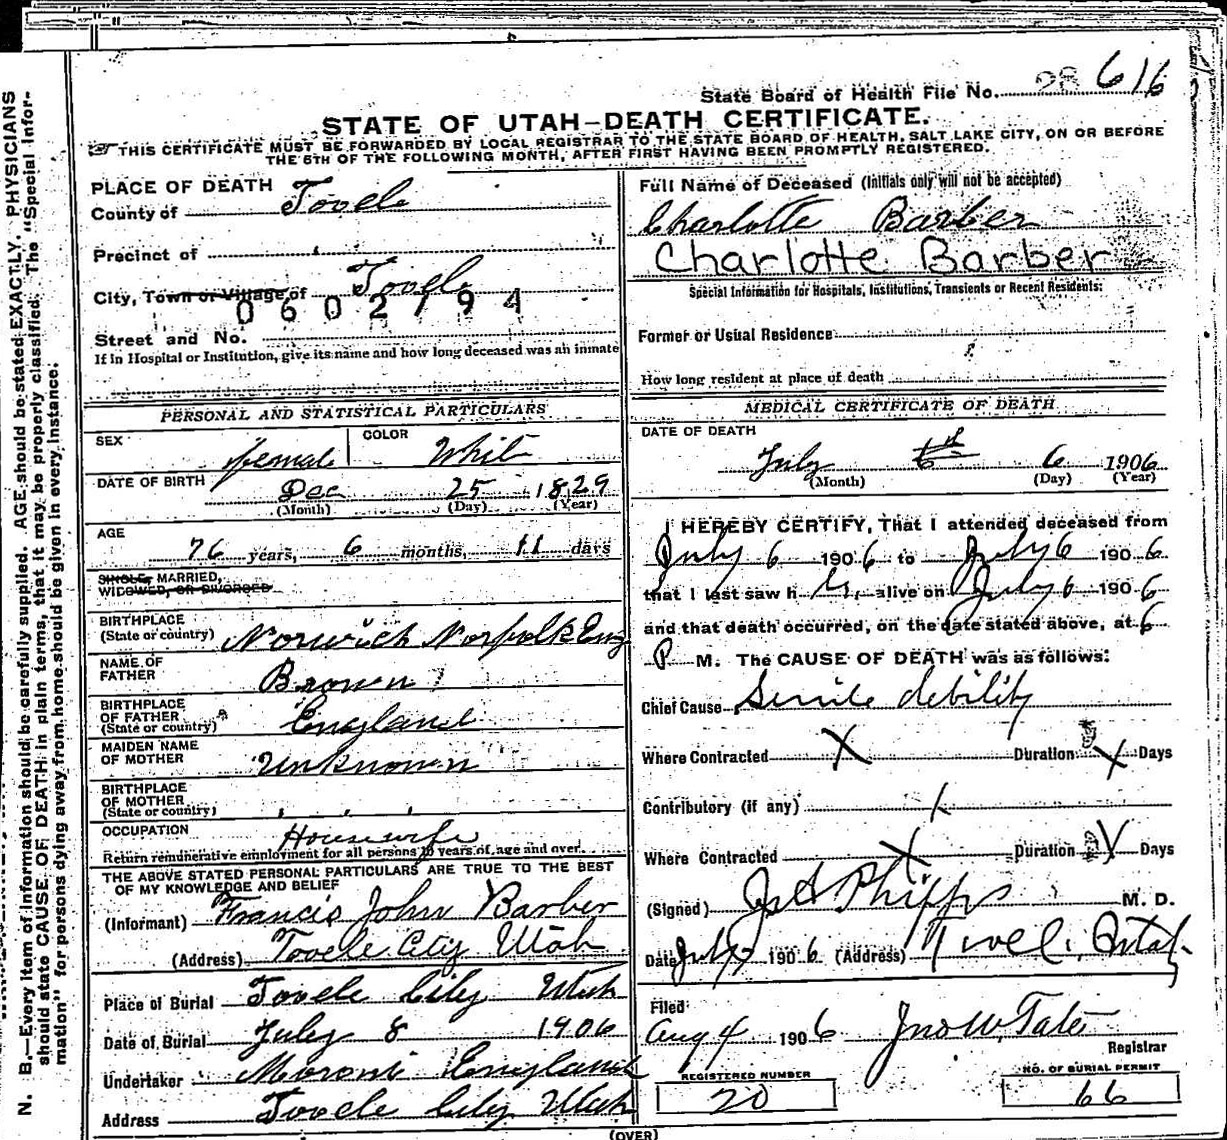 State Board of Health File No. 28 616
STATE OF UTAH—DEATH CERTIFICATE.
THIS CERTIFICATE MUST BE FORWARDED BY LOCAL REGISTRAR TO THE STATE BOARD OF HEALTH, SALT LAKE CITY, ON OR BEFORE
THE 5TH OF THE FOLLOWING MONTH, AFTER FIRST HAVING BEEN PROMPTLY REGISTERED.
PLACE OF DEATH
County of Tooele
Precinct of
City, Town or Village of Tooele
0602794
Street and No.
If in Hospital or Institution, give its name and how long deceased was an inmate
PERSONAL AND STATISTICAL PARTICULARS
SEX female COLOR White
DATE OF BIRTH Dec 25 1829
(Month) (Day) (Year)
AGE
76 years, 6 months, 11 days
SINGLE, MARRIED,
WIDOWED, OR DIVORCED
BIRTHPLACE
(State or country) Norwich Norfolk Eng
NAME OF
FATHER Brown
BIRTHPLACE
OF FATHER
(State or country) England
MAIDEN NAME
OF MOTHER Unknown
BIRTHPLACE
OF MOTHER
(State or country)
OCCUPATION Housewife
Return remunerative employment for all persons 10 years of age and over.
THE ABOVE STATED PERSONAL PARTICULARS ARE TRUE TO THE BEST
OF MY KNOWLEDGE AND BELIEF
(Informant) Francis John Barber
(Address) Tooele City Utah
Place of Burial Tooele City Utah
Date of Burial July 8 1906
Undertaker Moroni England
Address Tooele City Utah
Full Name of Deceased (Initials only will not be accepted)
Charlotte Barber
Charlotte Barber
Special Information for Hospitals, Institutions, Transients or Recent Residents:
Former or Usual Residence
How long resident at place of death
MEDICAL CERTIFICATE OF DEATH
DATE OF DEATH
July 6th 6 1906
(Month) (Day) (Year)
I HEREBY CERTIFY, That I attended deceased from
July 6 1906 to July 6 1906
that I last saw h er alive on July 6 1906
and that death occurred, on the date stated above, at 6
P M. The CAUSE OF DEATH was as follows:
Chief Cause Senile debility
Where Contracted X Duration X Days
Contributory (if any) X
Where Contracted X Duration X Days
(Signed) J A Phipps M. D.
Date July 7 1906 (Address) Tooele, Utah
Filed
Aug 4 1906 Jno W. Tate
Registrar
REGISTERED NUMBER
20
NO. OF BURIAL PERMIT
66
(OVER)
N. B.—Every item of information should be carefully supplied. AGE should be stated EXACTLY. PHYSICIANS
should state CAUSE OF DEATH in plain terms, that it may be properly classified. The "Special Infor-
mation" for persons dying away from home should be given in every instance.